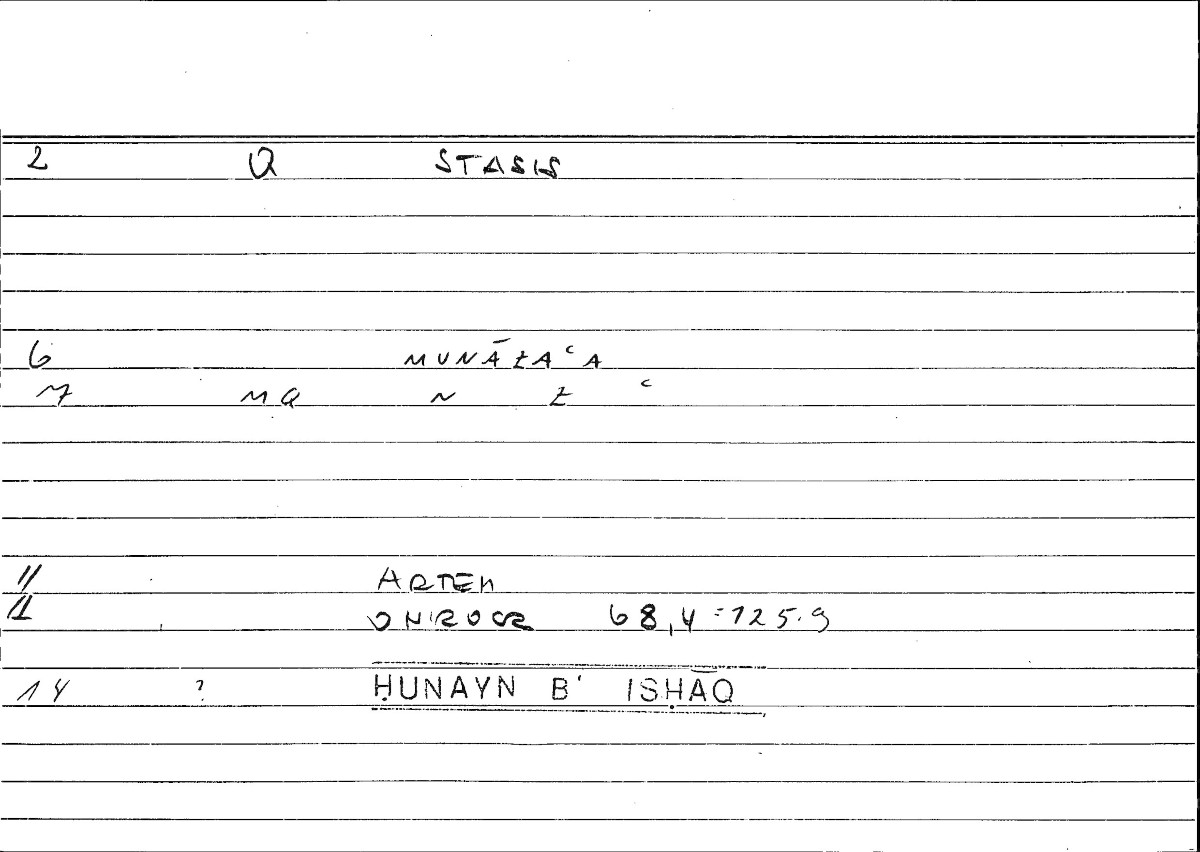 2 Q STASIS
6 MUNĀZAᶜA
7 MQ N Z ᶜ
11 ARTEM
12 ONIROCR 68,4=125.9
14 ? ḤUNAYN B' ISḤĀQ